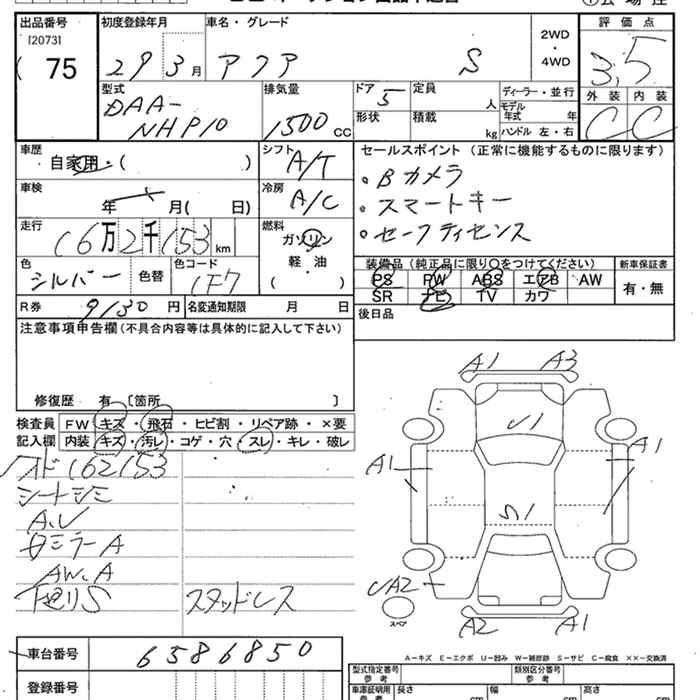 出品番号 初度登録年月 車名・グレード 2WD ・ 4WD 評価点
[2073]
75 29 3月 アクア S 3.5
型式 排気量 ドア 定員 ディーラー・並行 外装 内装
DAA-NHP10 1500cc 5 人 モデル年式 年 C C
形状 積載 kg ハンドル 左・右
車歴 シフト セールスポイント (正常に機能するものに限ります)
自家用・( ) A/T ・Bカメラ
車検 冷房 ・スマートキー
年 月( 日) A/C ・セーフティセンス
走行 燃料
16万2千153km ガソリン
軽・油
( )
色 色コード 装備品(純正品に限り○をつけてください) 新車保証書
シルバー 色替 1F7 PS PW ABS エアB AW 有・無
SR ナビ TV カワ
R券 9130円 名変通知期限 月 日 後日品
注意事項申告欄(不具合内容等は具体的に記入して下さい)
修復歴 有 〔箇所 〕
検査員 FW キズ・飛石・ヒビ割・リペア跡・×要
記入欄 内装 キズ・汚レ・コゲ・穴・スレ・キレ・破レ
162153
シートシミ
A.U
ミラーA
AW.A
下廻りS スタッドレス
A1 A3
U1
A1 A1
S1
A2
スペア A2 A1
A−キズ E−エクボ U−凹み W−補修跡 S−サビ C−腐食 ××−交換済
車台番号 6586850
登録番号
型式指定番号 参考 類別区分番号 参考
車庫証明用 参考 長さ cm 幅 cm 高さ cm